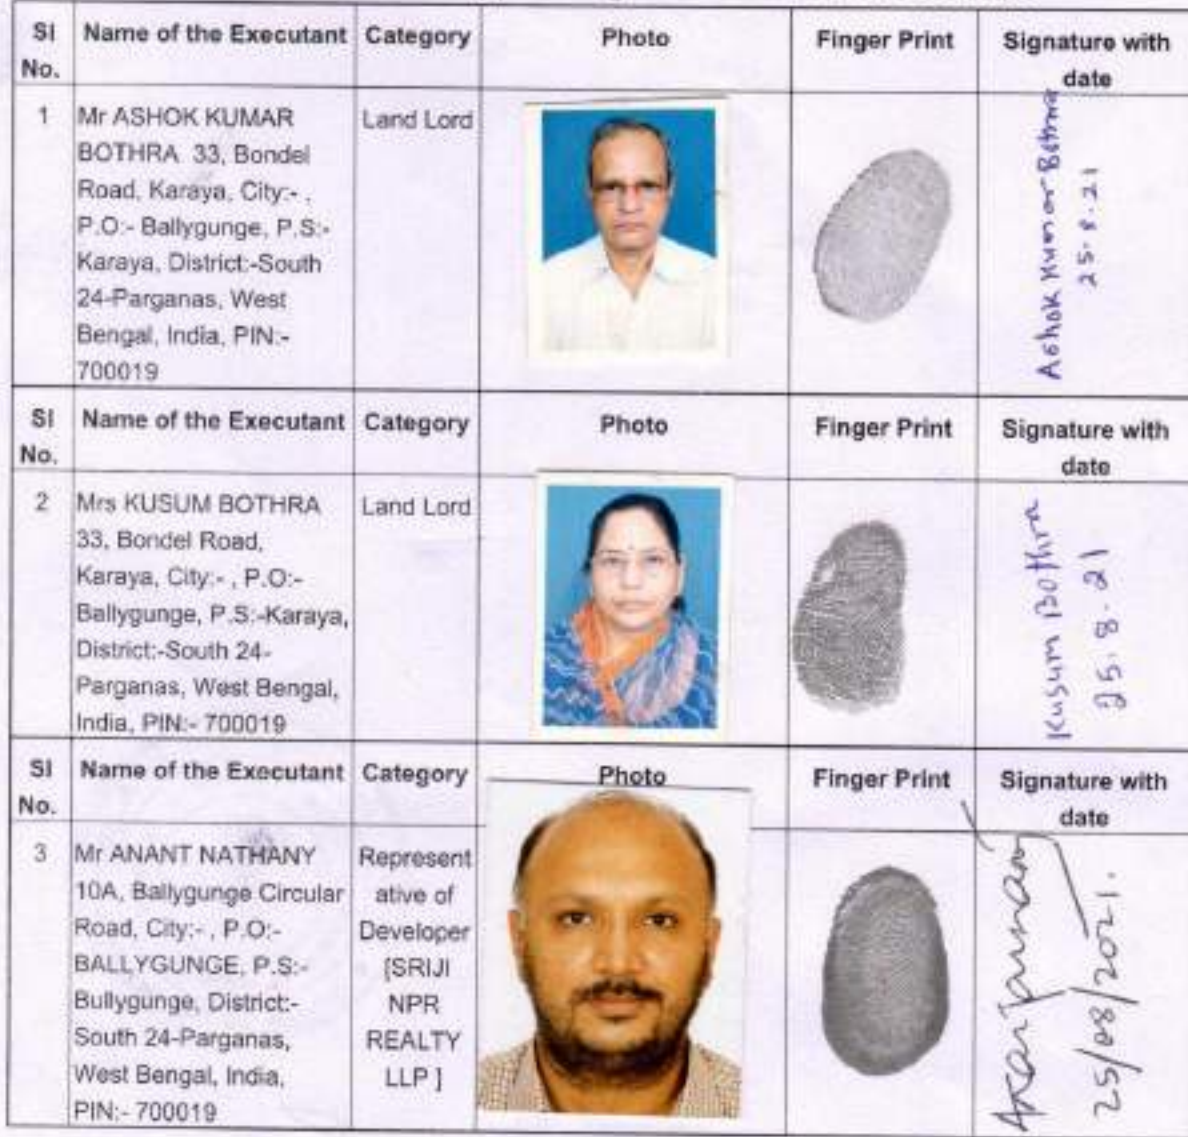 Sl No. Name of the Executant Category Photo Finger Print Signature with date
1 Mr ASHOK KUMAR Land Lord
BOTHRA 33, Bondel
Road, Karaya, City:- ,
P.O:- Ballygunge, P.S:-
Karaya, District:-South
24-Parganas, West
Bengal, India, PIN:-
700019
Ashok Kumar Bothra
25.8.21
Sl No. Name of the Executant Category Photo Finger Print Signature with date
2 Mrs KUSUM BOTHRA Land Lord
33, Bondel Road,
Karaya, City:- , P.O:-
Ballygunge, P.S:-Karaya,
District:-South 24-
Parganas, West Bengal,
India, PIN:- 700019
Kusum Bothra
25.8.21
Sl No. Name of the Executant Category Photo Finger Print Signature with date
3 Mr ANANT NATHANY
10A, Ballygunge Circular
Road, City:- , P.O:-
BALLYGUNGE, P.S:-
Bullygunge, District:-
South 24-Parganas,
West Bengal, India,
PIN:- 700019
Represent
ative of
Developer
[SRIJI
NPR
REALTY
LLP ]
25/08/2021.